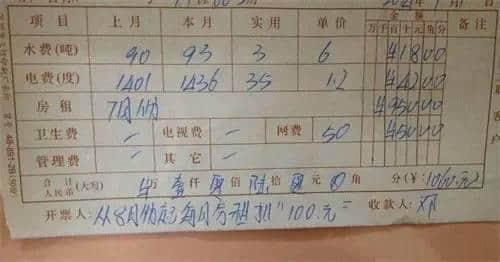 项目 上月 本月 实用 单价 金额 备注
万 千 百 十 元 角 分
水费(吨) 90 93 3 6 ¥1800
电费(度) 1401 1436 35 1.2 ¥4200
房租 7月份 ¥95000
卫生费 — 电视费 — 网费 50 ¥5000
管理费 — 其它 —
合计人民币(大写) 万 壹仟 佰 陆拾 元 0角 分(¥:1060.元)
开票人: 从8月份起每月房租扣"100.元" 收款人:
客户